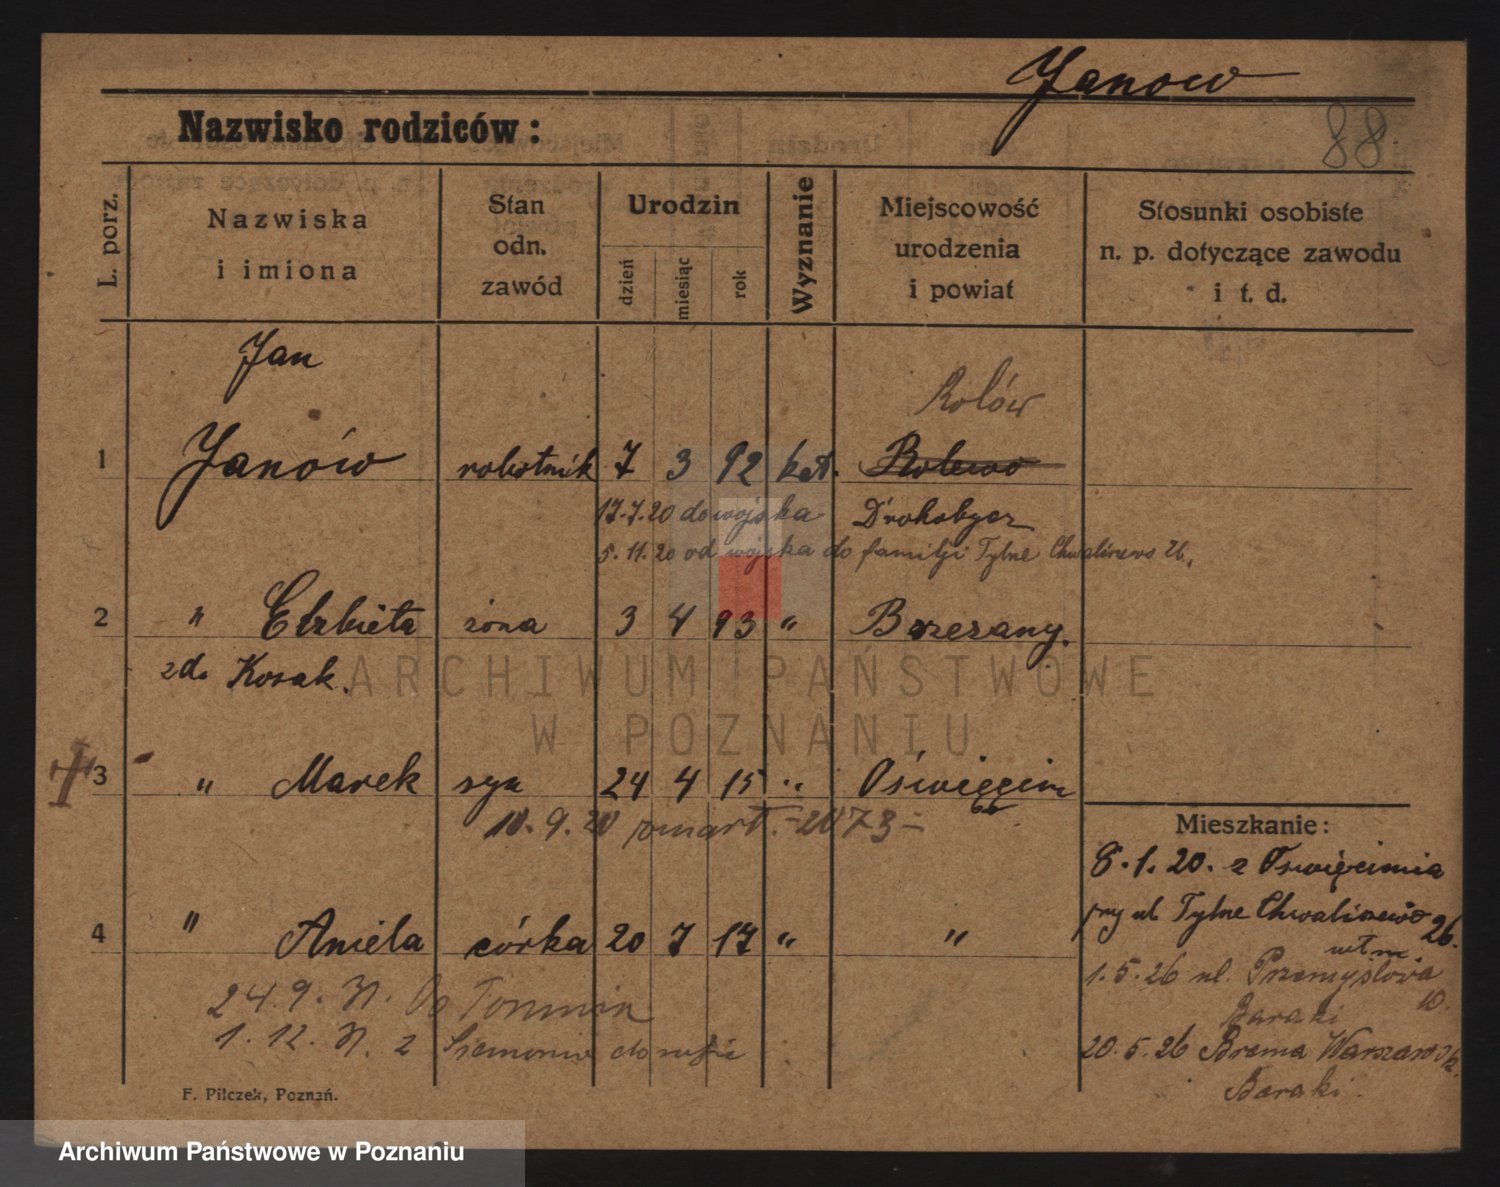 Janow
88
Nazwisko rodziców:
L. porz.
Nazwiska
i imiona
Stan
odn.
zawód
Urodzin
dzień
miesiąc
rok
Wyznanie
Miejscowość
urodzenia
i powiat
Stosunki osobiste
n. p. dotyczące zawodu
i t. d.
Jan
Rolów
1 Janów robotnik 7 3 92 kat. Rolewo
17.7.20 do wojska Drohobycz
5.11.20 od wojska do familji Tylne Chwaliszewo 26.
2 " Elzbieta żona 3 4 93 " Brzezany.
zd. Kozak.
ARCHIWUM PAŃSTWOWE
W POZNANIU
3 " Marek syn 24 4 15 " Oświęcim
10.9.20 zmart. - 2073 -
Mieszkanie:
8.1.20. z Oświęcimia
przy ul. Tylne Chwaliszewo 26.
4 " Aniela córka 20 7 17 " "
1.5.26 ul. Przemysłowa
Baraki 10.
24.9.
1.12. z
20.5.26 Brama Warszawska
Baraki.
F. Pilczek, Poznań.
Archiwum Państwowe w Poznaniu